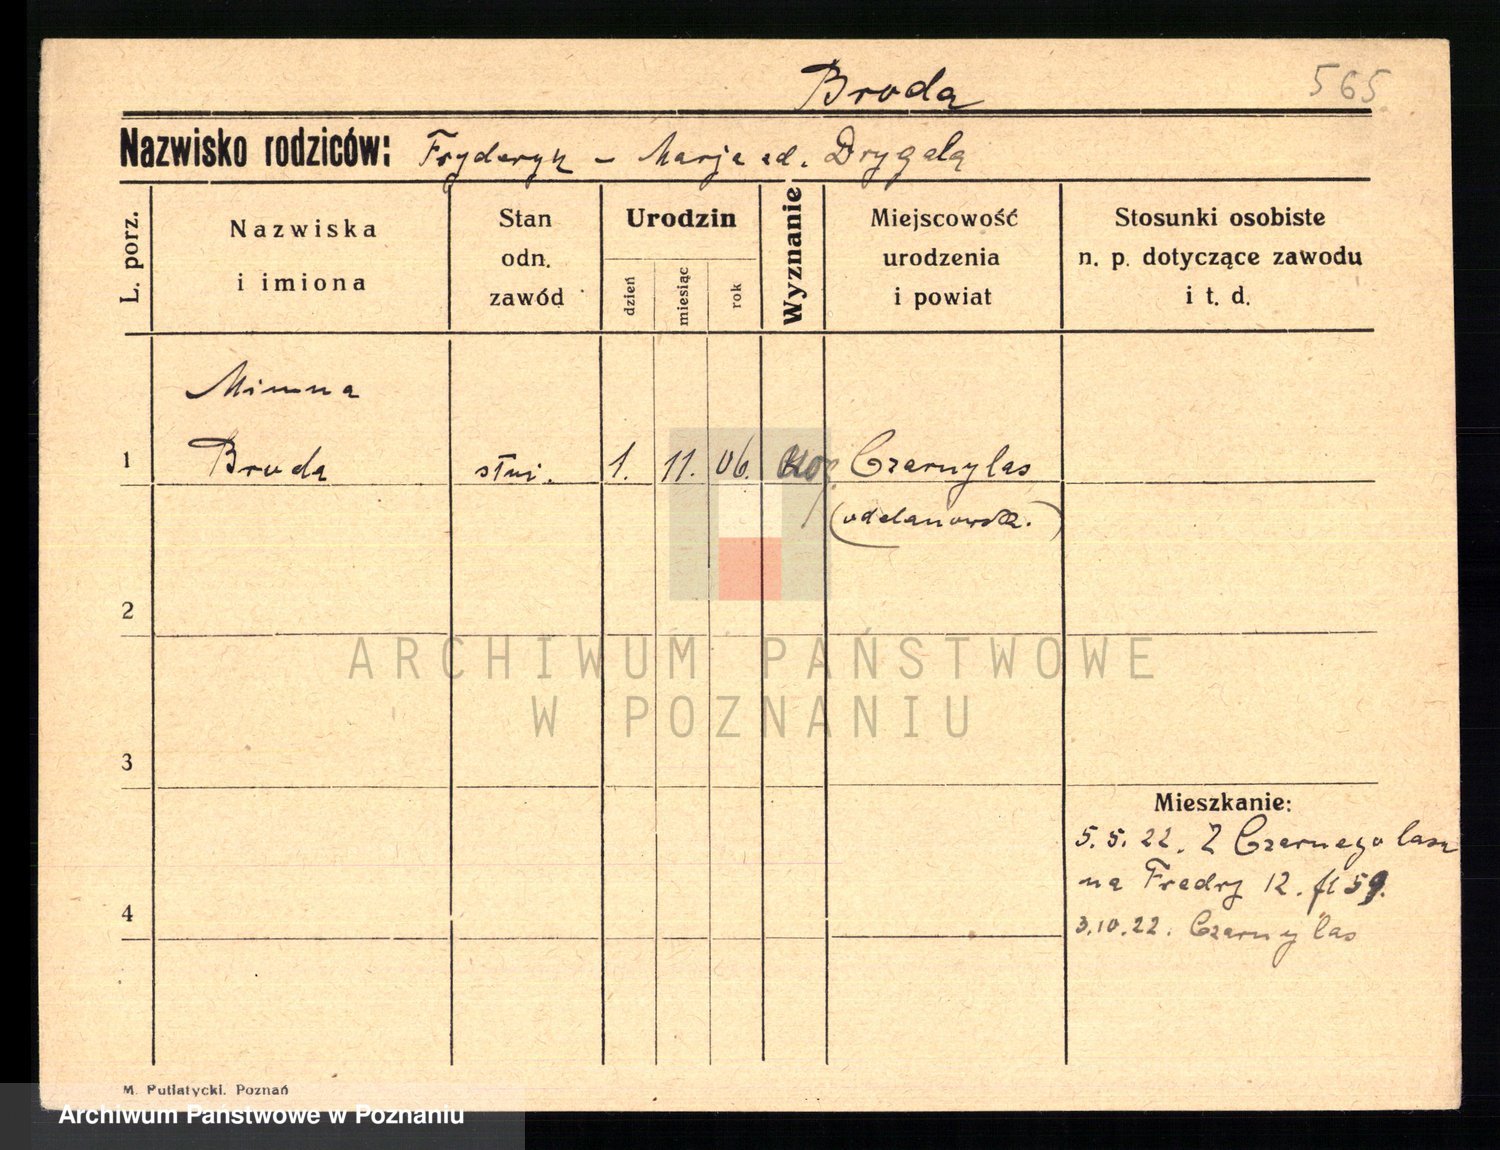 Broda
565.
Nazwisko rodziców: Fryderyk – Marja zd. Drygala
L. porz.
Nazwiska
i imiona
Stan
odn.
zawód
Urodzin
dzień
miesiąc
rok
Wyznanie
Miejscowość
urodzenia
i powiat
Stosunki osobiste
n. p. dotyczące zawodu
i t. d.
Minna
1 Broda służ. 1. 11. 06. Czarnylas
(odolanowsk.)
2
3
4
Mieszkanie:
5. 5. 22. Z Czarnego lasu
na Fredry 12.
3.10.22. Czarny las
ARCHIWUM PAŃSTWOWE
W POZNANIU
M. Putiatycki. Poznań
Archiwum Państwowe w Poznaniu